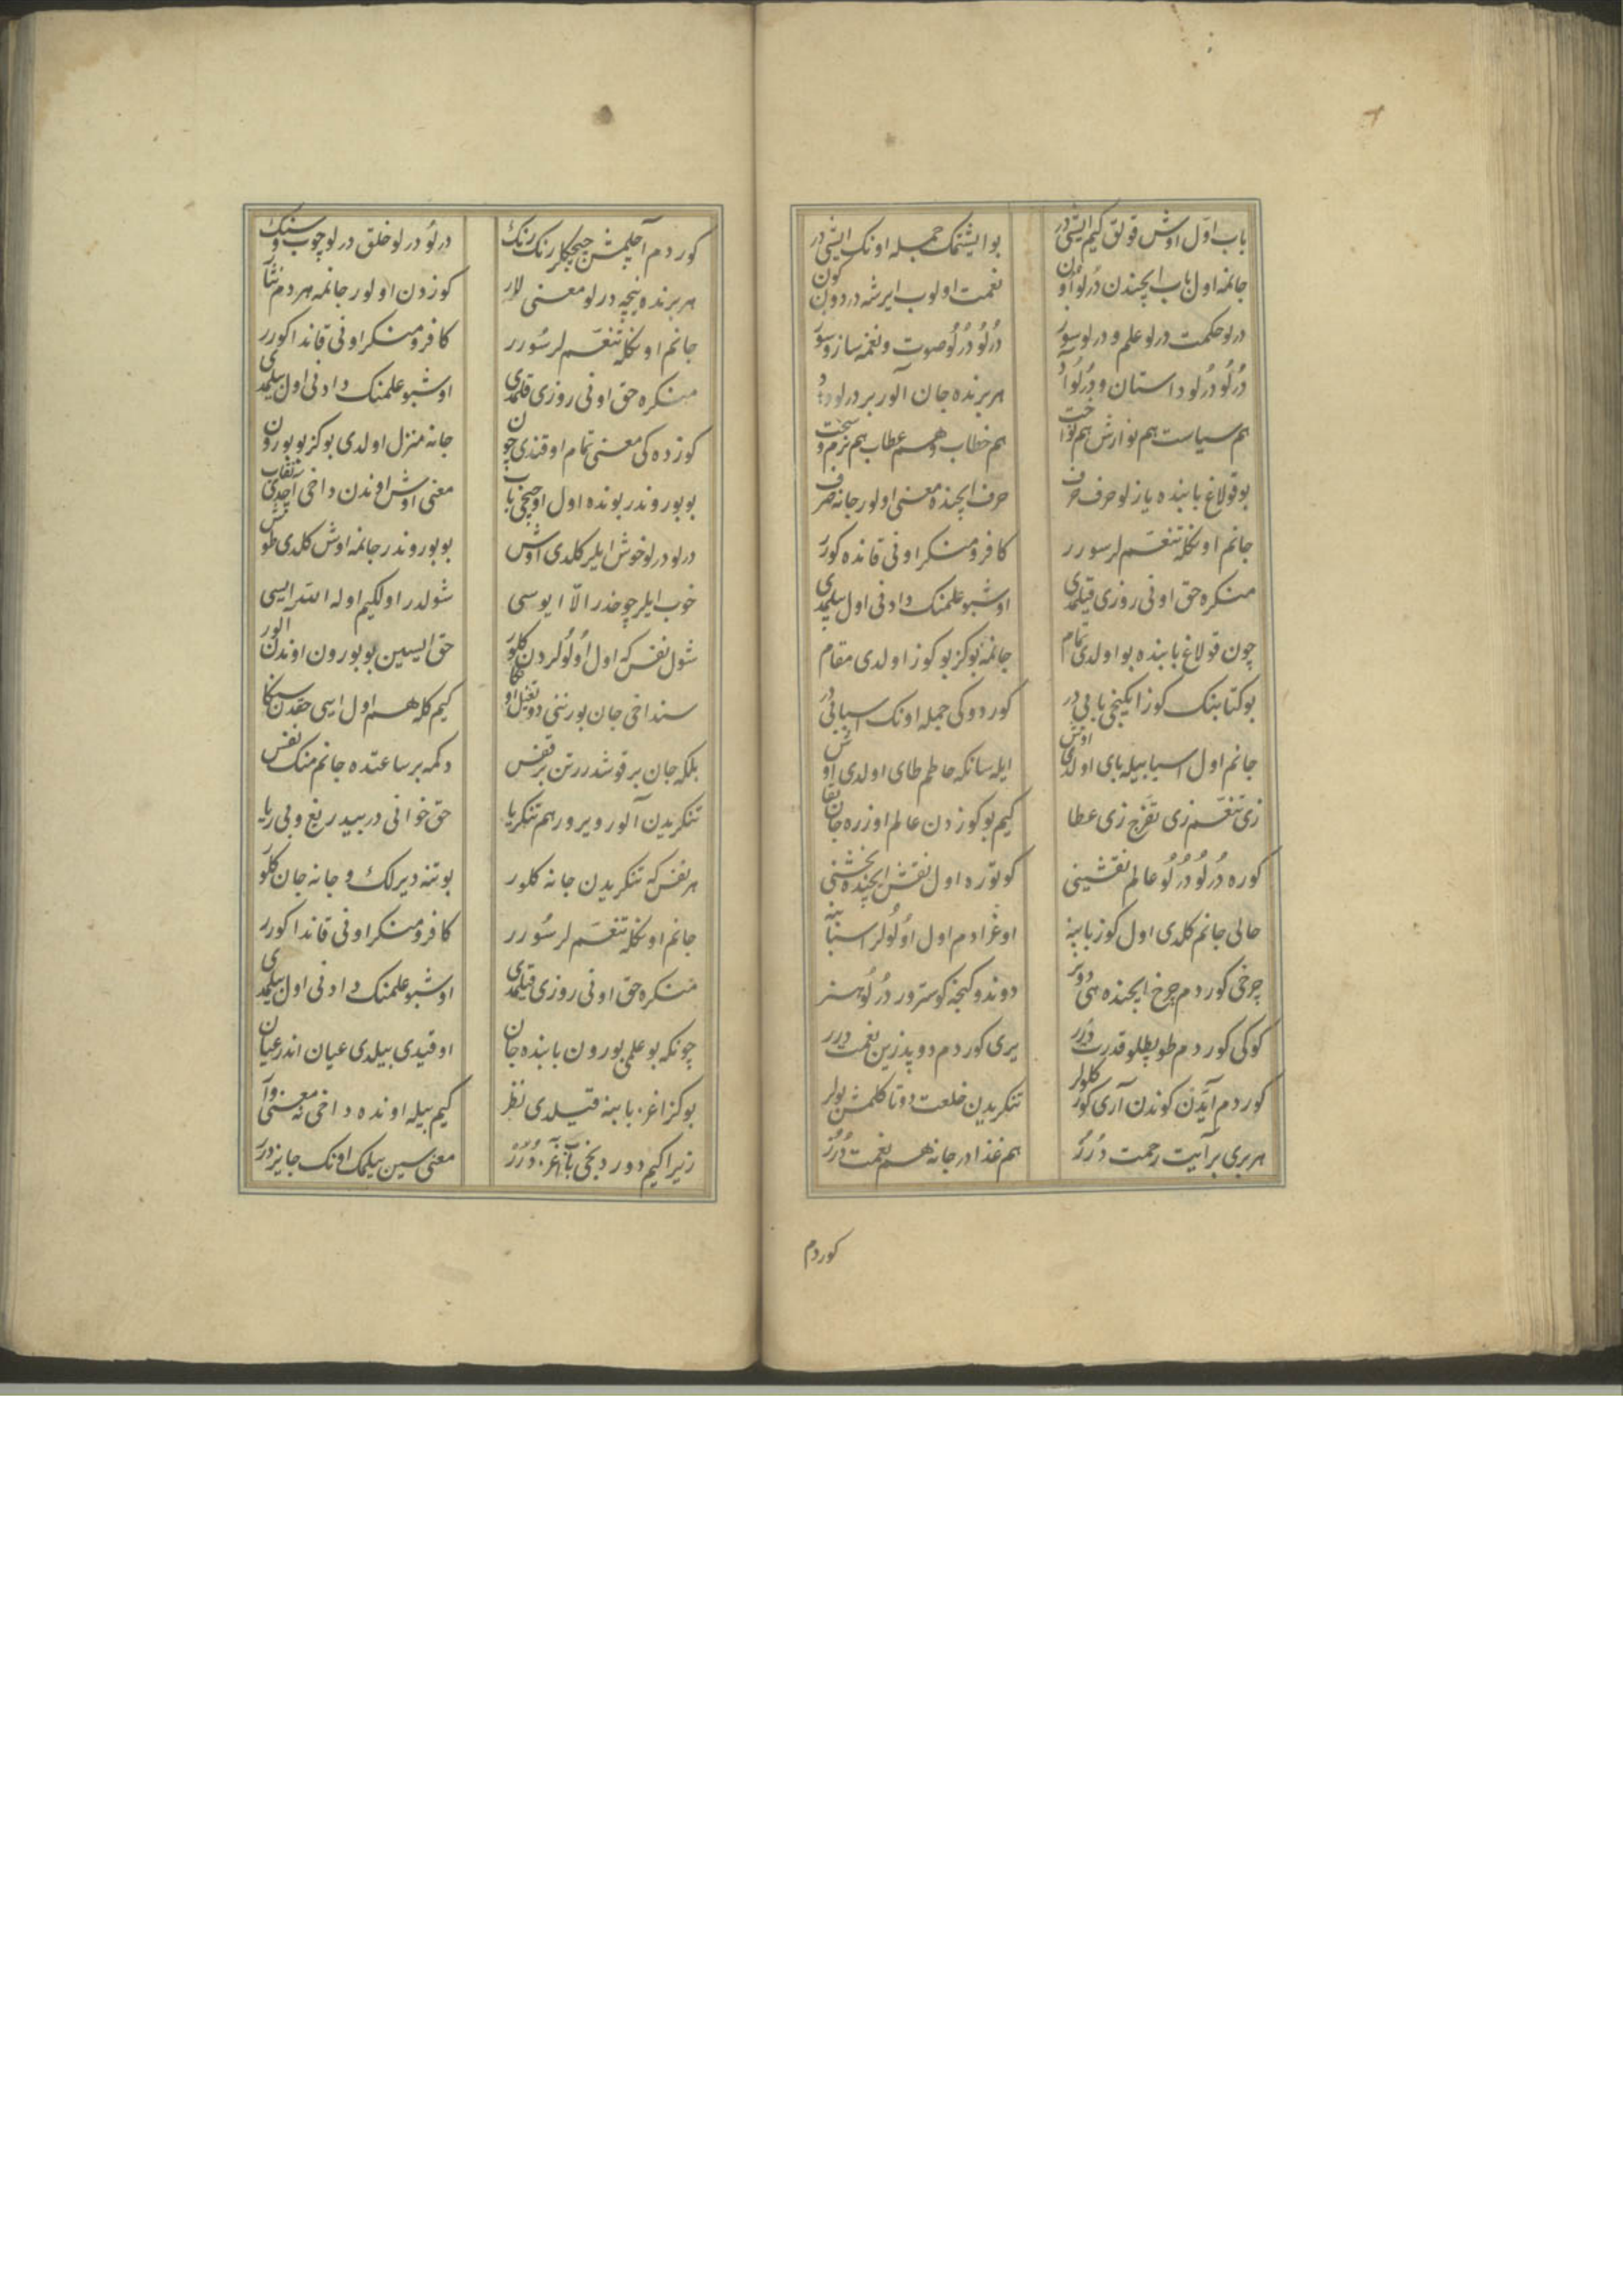 باب اوّل اوش قولق كيم ايشيدر بو ايشتمك جمله اونك ايشيدر
جانمه اول باب ايچندن درلو اون نعمت اولوب ايرشه در دون كون
درلو حكمت درلو علم و درلو سوز دُرلُو دُرلُو صوت و نغمه ساز و سوز
دُرلُو دُرلو داستان و دُرلُو آد هر برنده جان آلور بر درلو داد
هم سياست هم نوازش هم نواخت هم خطاب و هم عطاب هم نرم و سخت
بو قولاغ بابنده يازلو حرف حرف حرف ايچنده معنى اولور جانه صرف
جانم اونكله تنغّم لر سورر كافر و منكر اونى قانده كورر
منكره حق اونى روزى قيلمدى اوشبو علمنك دادنى اول بيلمدى
چون قولاغ بابنده بو اولدى تمام جانمه بو كز بو كوز اولدى مقام
بو كتابنك كوز ايكنجى بابى در كوردوكى جمله اونك اسبابى در
جانم اول اسبابيله باى اولدى اوش ايله سانكه حاطم طاى اولدى اوش
زى تنغّم زى تفرّج زى عطا كيم بو كوزدن عالم اوزره جان
كوره دُرلُو دُرلُو عالم نقشينى كوتوره اول نقش ايچنده بخشنى
حالى جانم كلدى اول كوز بابنه اوغرادم اول اُولُولر اسبابنه
چرخى كوردم چرخ ايچنده هى دونر دوندوكنجه كوسترور دُرلُو هنر
كوكى كوردم طوپطلو قدرت دُرر يرى كوردم دوپدزين نعمت درر
كوردم آيدن كوندن آرى كوز كلولر تنكريدن خلعت دوتا كلمش بولر
هر برى بر آيت رحمت دُرُر هم غذادر جانه هم نعمت دُرُر
كوردم
كوردم آچلمش چيچكلر رنك رنك درلُو درلو خلق درلو چوب و سنك
هر برنده نيچه درلو معنى لار كوزدن اولور جانمه هر دم نثار
جانم اونكله تنغّم لر سُورر كافر و منكر اونى قاندا كورر
منكره حق اونى روزى قلمدى اوشبو علمنك دادنى اول بيلمدى
كوزده كى معنى تمام اوقندى چون جانه منزل اولدى بو كز بو بورون
بو بوروندر بونده اول اوچنجى باب معنى اوش اوندن داخى آچدى نقاب
درلو درلو خوش ايلر كلدى اوش بو بوروندر جانمه اوش كلدى طوش
خوب ايلر چوخدر الّا ايو سى شولدر اولكيم اوله اللّه ايسى
شول نفس كه اول اُولُولردن كلور حق ايسين بو بورون اوندن الور
سنداخى جان بورننى دوتغيل اوكا كيم كله هم اول ايسى حقدن سكا
بلكه جان بر قوشدرر تن بر قفس دكمه بر ساعتده جانم منك نفس
تنكريدن آلور ويرور هم تنكريا حق خوانى در بيدريغ و بى ريا
هر نفس كه تنكريدن جانه كلور بو تنه ديرلك و جانه جان كلور
جانم اونكله تنغّم لر سُورر كافر و منكر اونى قاندا كورر
منكره حق اونى روزى قيلمدى اوشبو علمنك دادنى اول بيلمدى
چونكه بو علمى بورون بابنده جان اوقيدى بيلدى عيان اندر عيان
بو كز اغز بابنه قيلدى نظر كيم بيله اونده داخى نه معنى وار
زيرا كيم دوردنجى باب اغز دُرُر معنى سين بيلمك اونك جايز درر